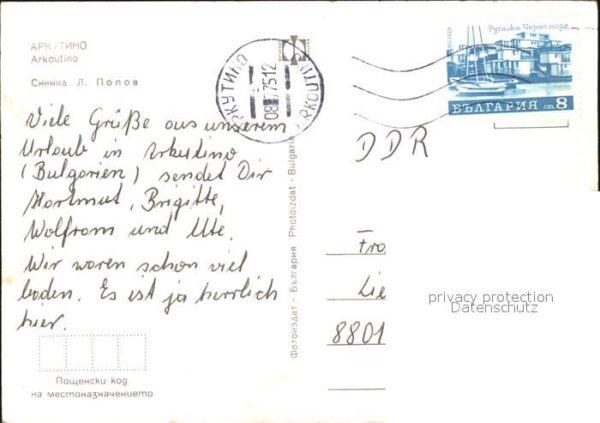 АРКУТИНО
Arkoutino
Снимка Л. Попов
Viele Grüße aus unserem
Urlaub in Arkutino
(Bulgarien) sendet Dir
Hartmut, Brigitte,
Wolfram und Ute.
Wir waren schon viel
baden. Es ist ja herrlich
hier.
Пощенски код
на местоназначението
Фотоиздат - България Photoizdat - Bulgaria
АРКУТИНО
08 75 12
ARKOUTI
Русалка Черноморе
БЪЛГАРИЯ ст 8
DDR
Fra
Lie
8801
privacy protection
Datenschutz